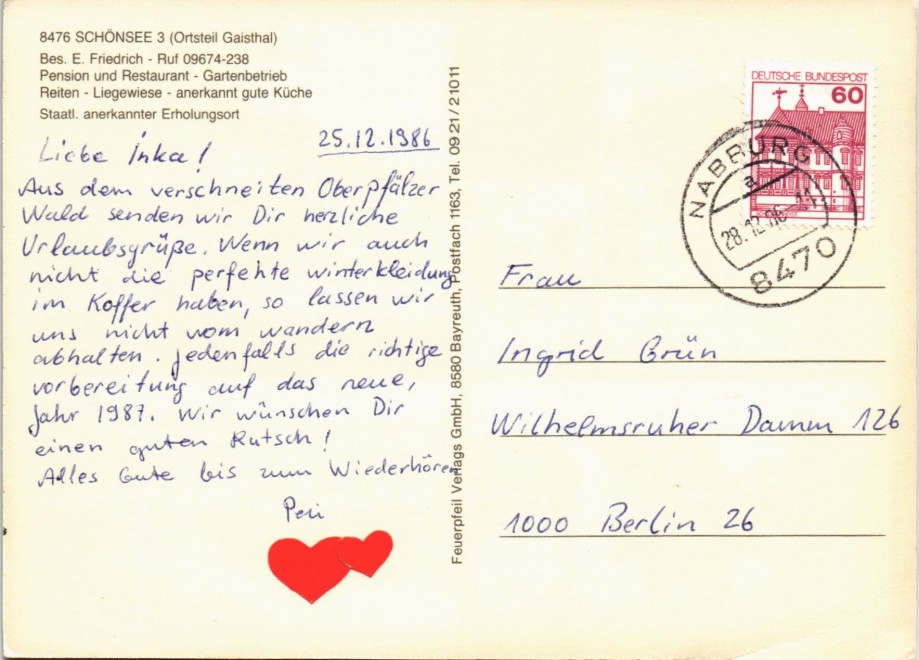 8476 SCHÖNSEE 3 (Ortsteil Gaisthal)
Bes. E. Friedrich - Ruf 09674-238
Pension und Restaurant - Gartenbetrieb
Reiten - Liegewiese - anerkannt gute Küche
Staatl. anerkannter Erholungsort
25.12.1986
Liebe Inka!
Aus dem verschneiten Oberpfälzer
Wald senden wir Dir herzliche
Urlaubsgrüße. Wenn wir auch
nicht die perfekte winterkleidung
im Koffer haben, so lassen wir
uns nicht vom wandern
abhalten. jedenfalls die richtige
vorbereitung auf das neue,
Jahr 1987. Wir wünschen Dir
einen guten Rutsch!
Alles Gute bis zum Wiederhören
Peri
Feuerpfeil Verlags GmbH, 8580 Bayreuth, Postfach 1163, Tel. 09 21 / 2 10 11
DEUTSCHE BUNDESPOST
60
NABBURG
a
28.12.86-11
8470
Frau
Ingrid Grün
Wilhelmsruher Damm 126
1000 Berlin 26